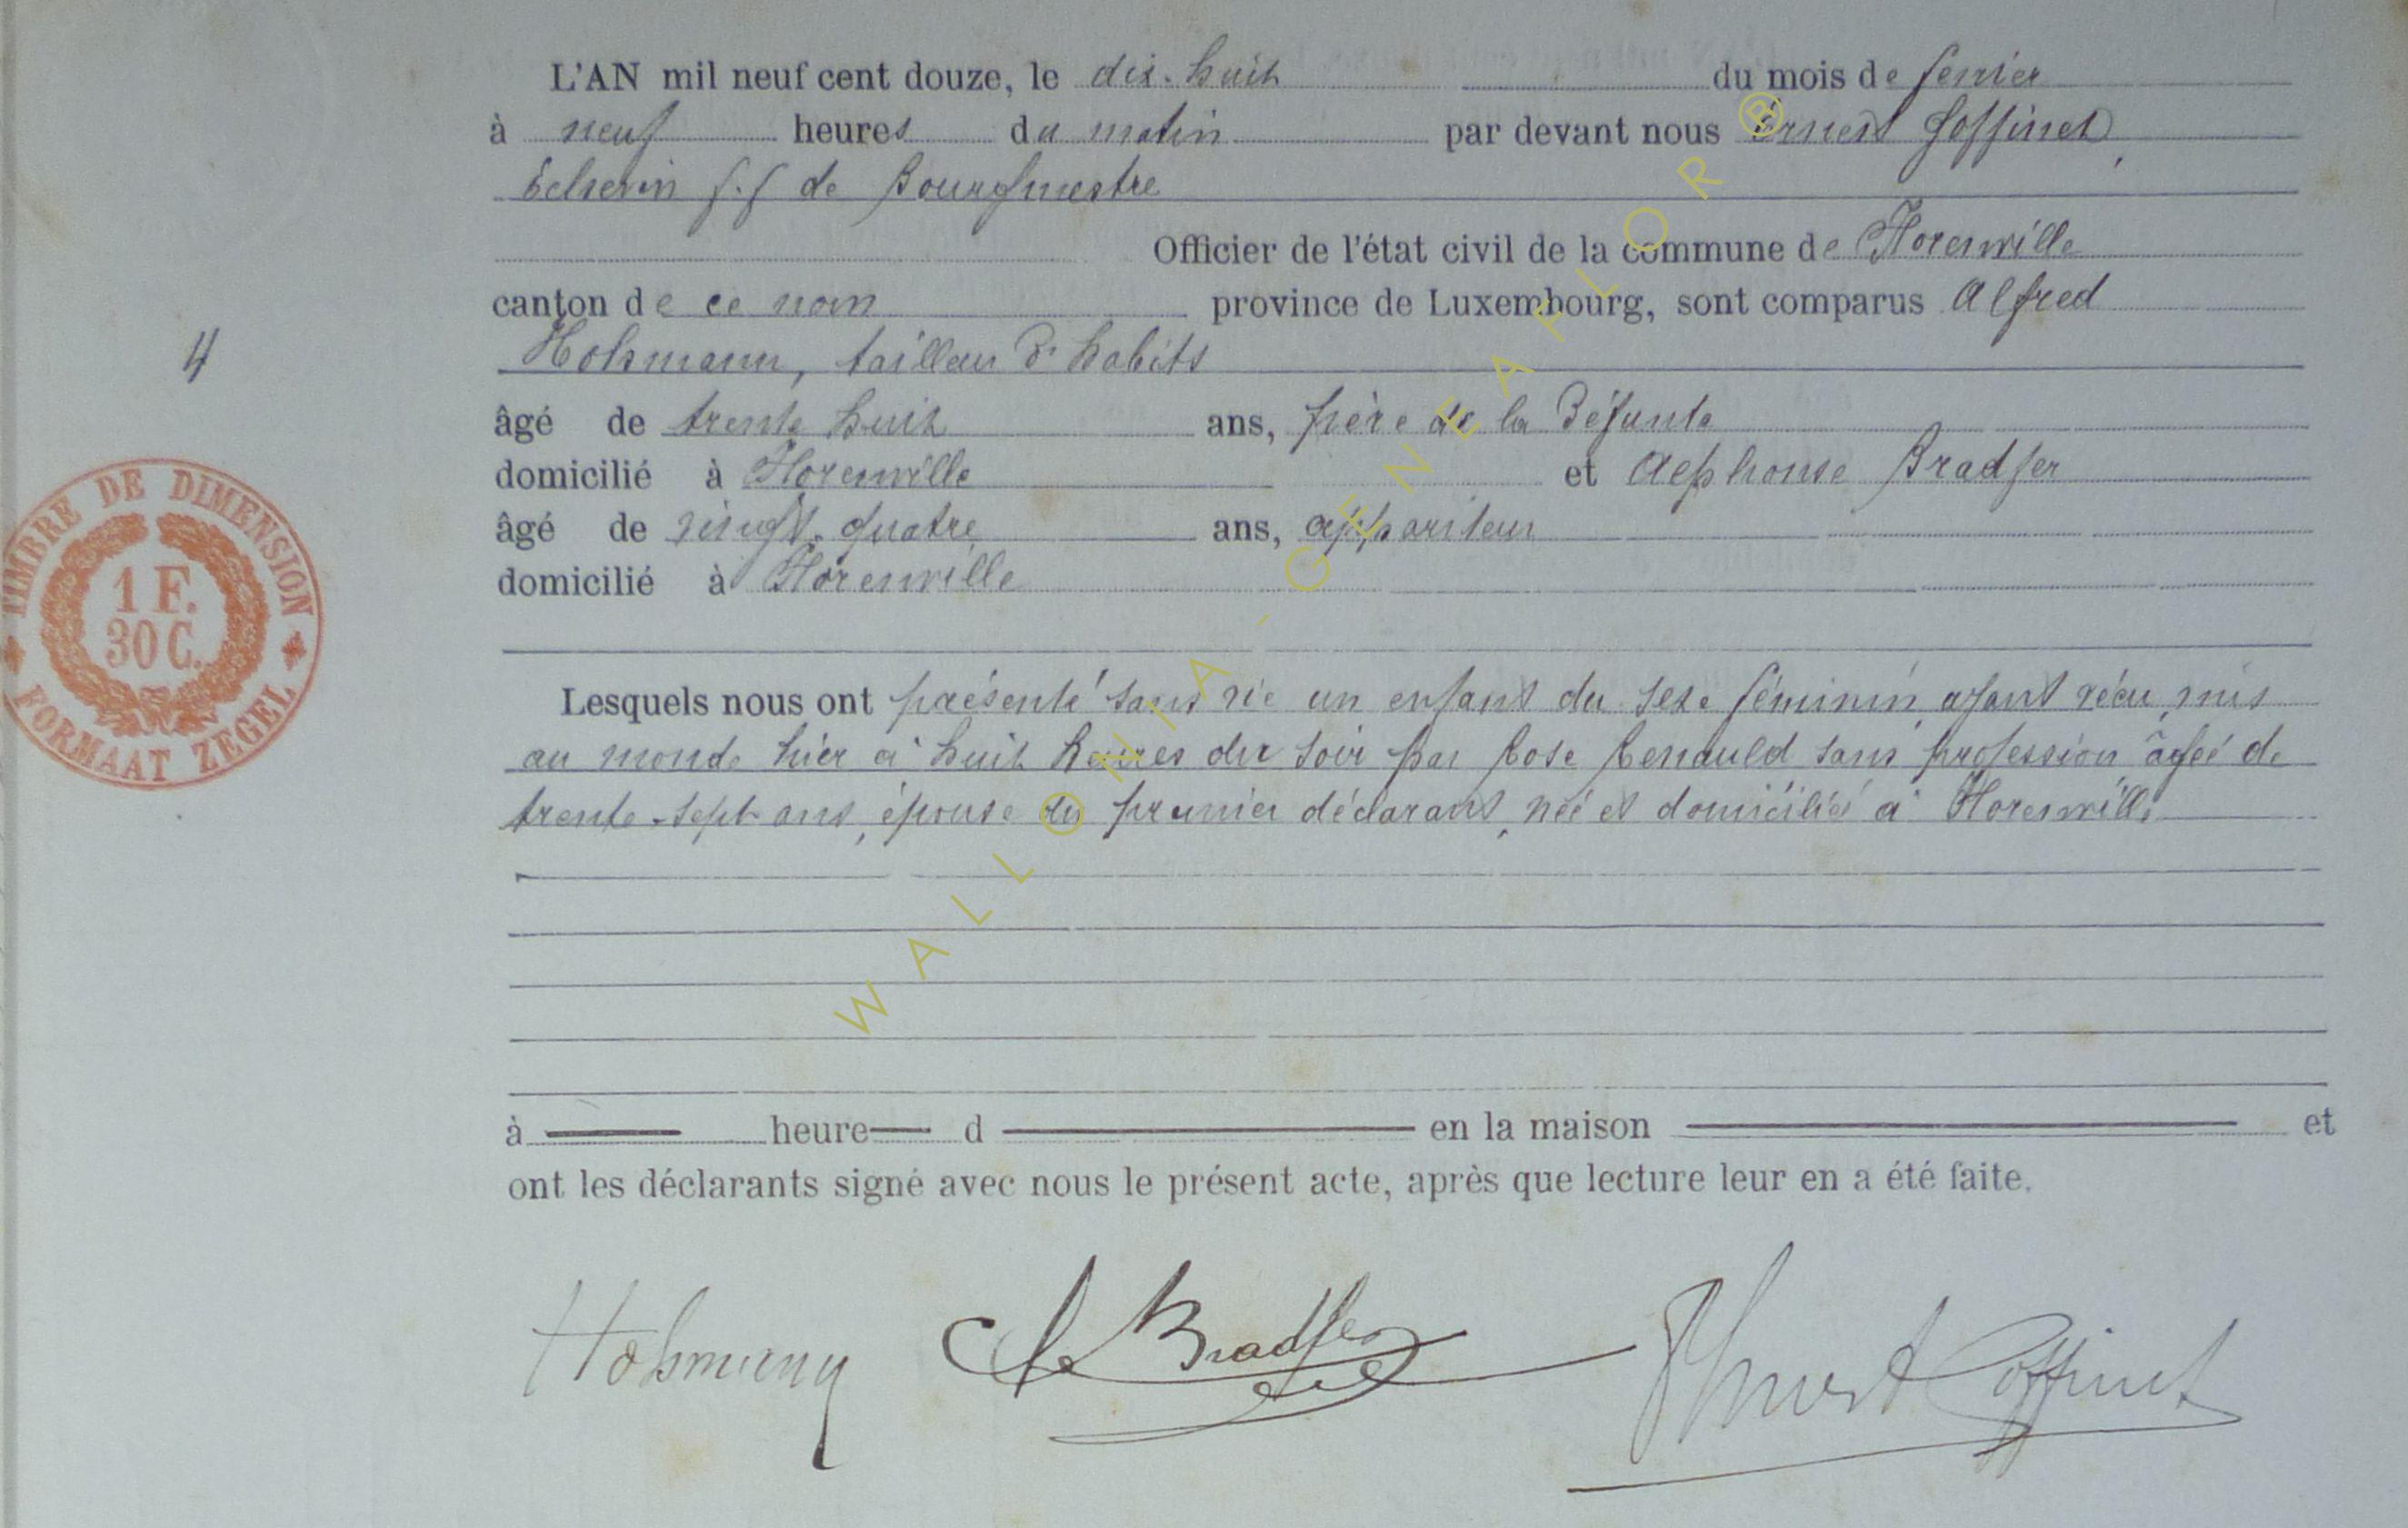 L'AN mil neuf cent douze, le dix-huit du mois de fevrier
à neuf heures du matin par devant nous Ernest Goffinet,
Echevin f.f de Bourgmestre
Officier de l'état civil de la commune de Florenville
canton de ce nom province de Luxembourg, sont comparus Alfred
Hohmann, tailleur d'habits
4
âgé de trente huit ans, père de la défunte
domicilié à Florenville et Alphonse Bradfer
âgé de vingt-quatre ans, appariteur
domicilié à Florenville
TIMBRE DE DIMENSION
1 F.
30 C.
FORMAAT ZEGEL
Lesquels nous ont présenté sans vie un enfant du sexe féminin, ayant vécu, mis
au monde hier à huit heures du soir par Rose Renauld sans profession âgée de
trente-sept ans, épouse du premier déclarant, née et domiciliée à Florenville
à heure d en la maison et
ont les déclarants signé avec nous le présent acte, après que lecture leur en a été faite.
Hohmann Bradfer Ernest Goffinet
WALLONIA-GENEAFLOR®